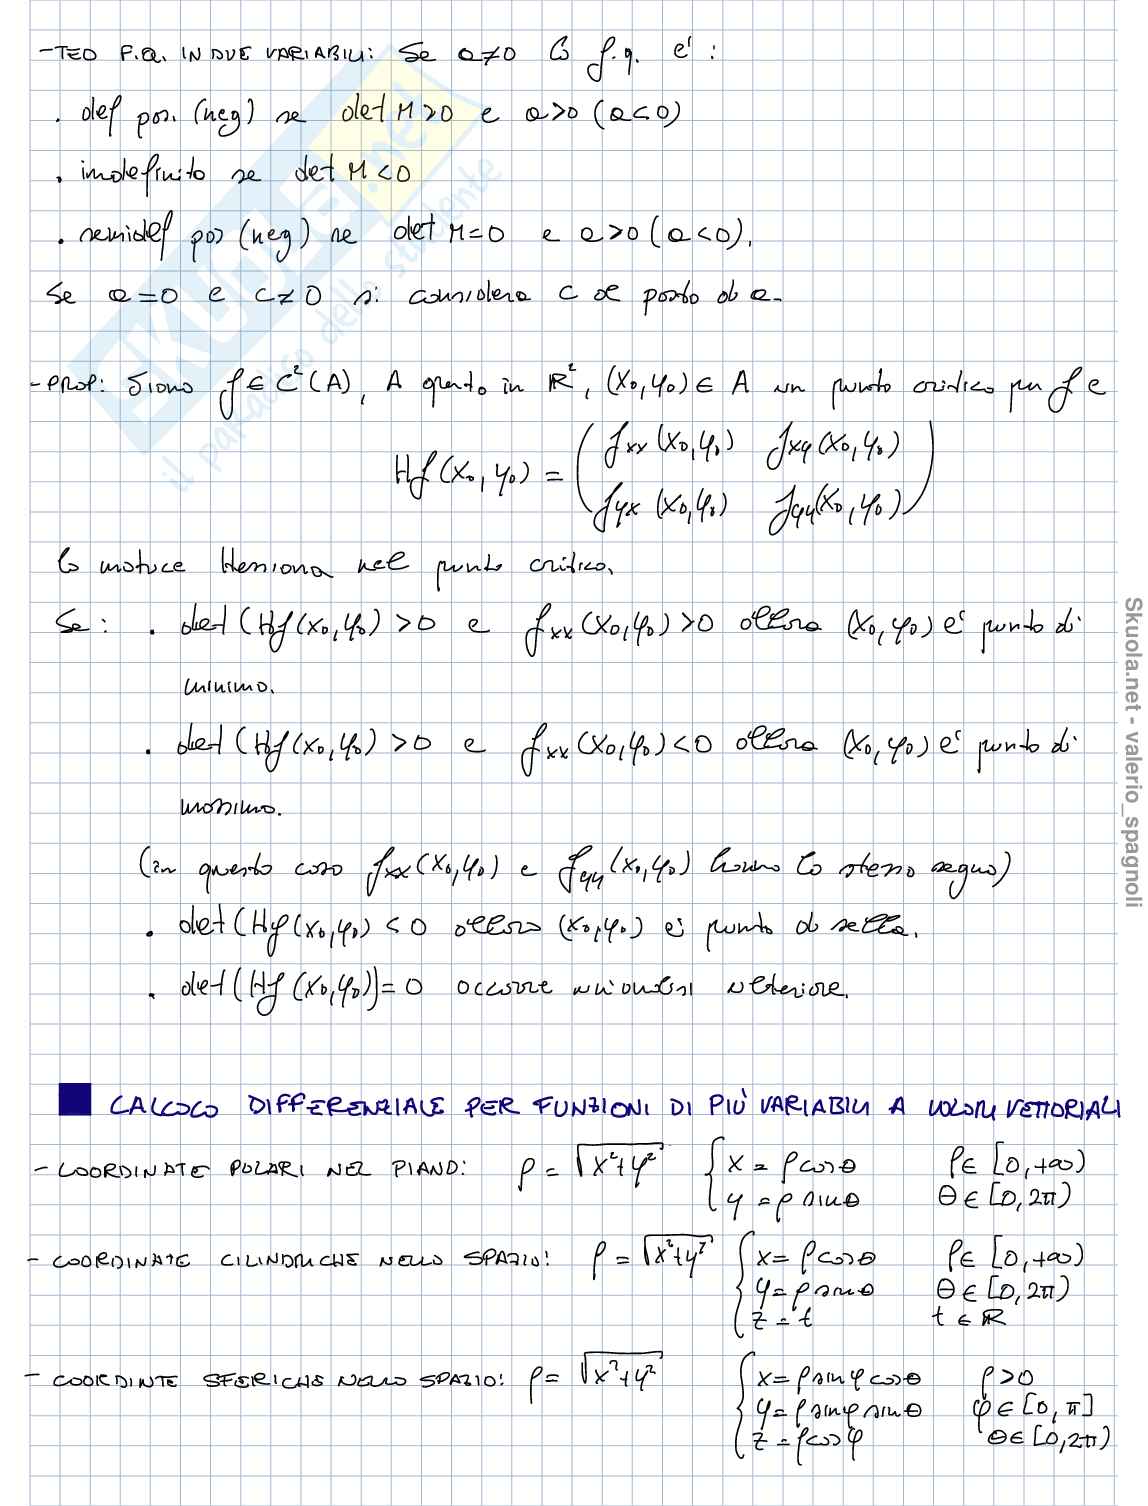 - TEO F.Q. IN DUE VARIABILI: Se a≠0 la f.q. e' :
. def pos. (neg) se det M>0 e a>0 (a<0)
. indefinito se det M<0
. semidef pos (neg) se det M=0 e a>0 (a<0).
Se a=0 e c≠0 si considera c al posto di a.
- PROP: Siano f∈C²(A), A aperto in ℝ², (x₀,y₀)∈ A un punto critico per f e
Hf(x₀,y₀) = ( fxx(x₀,y₀) fxy(x₀,y₀)
fyx(x₀,y₀) fyy(x₀,y₀) )
la matrice Hessiana nel punto critico.
Se: . det(Hf(x₀,y₀)>0 e fxx(x₀,y₀)>0 allora (x₀,y₀) e' punto di
minimo.
. det(Hf(x₀,y₀)>0 e fxx(x₀,y₀)<0 allora (x₀,y₀) e' punto di
massimo.
(in questo caso fxx(x₀,y₀) e fyy(x₀,y₀) hanno lo stesso segno)
. det(Hf(x₀,y₀)<0 allora (x₀,y₀) e' punto di sella.
. det(Hf(x₀,y₀))=0 occorre un'analisi ulteriore.
CALCOLO DIFFERENZIALE PER FUNZIONI DI PIÙ VARIABILI A VALORI VETTORIALI
- COORDINATE POLARI NEL PIANO: ρ = √x²+y² { x = ρcosθ ρ∈[0,+∞)
y = ρ sinθ θ∈[0,2π)
- COORDINATE CILINDRICHE NELLO SPAZIO: ρ = √x²+y² { x = ρcosθ ρ∈[0,+∞)
y = ρ sinθ θ∈[0,2π)
z = t t∈ℝ
- COORDINTE SFERICHE NELLO SPAZIO: ρ = √x²+y² { x = ρ sinφ cosθ ρ>0
y = ρ sinφ sinθ φ∈[0,π]
z = ρcosφ θ∈[0,2π)
SKUOLA.net
il paradiso dello studente
Skuola.net - valerio_spagnoli